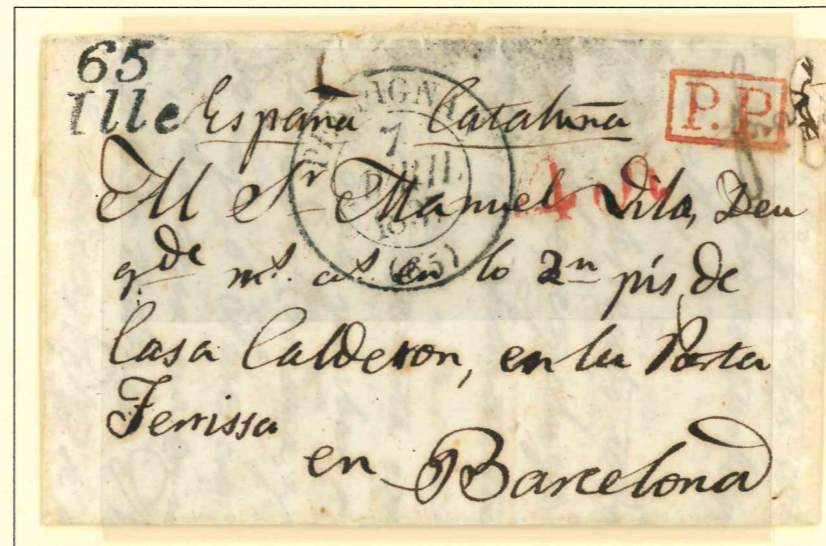 65
Ille
España Cataluña
P.P.
PERPIGNAN
7
AVRIL
(65)
4 R
M Sr Manuel Vila, Deu
gde ms as en lo 2n pis de
Casa Calderon, en la Porta
Ferrissa
en Barcelona